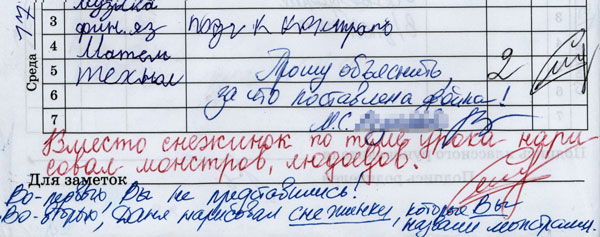 17
музыка
3 фин. яз подг к контраль
4 Матем
Среда 5 технол Прошу объяснить, 2
6 за что поставлена двойка!
7 М.С.
Вместо снежинок по теме урока нари
совал монстров, людоедов.
Для заметок
Во-первых, Вы не представились!
Во-вторых, Даня нарисовал снежинки, которые Вы
назвали монстрами.